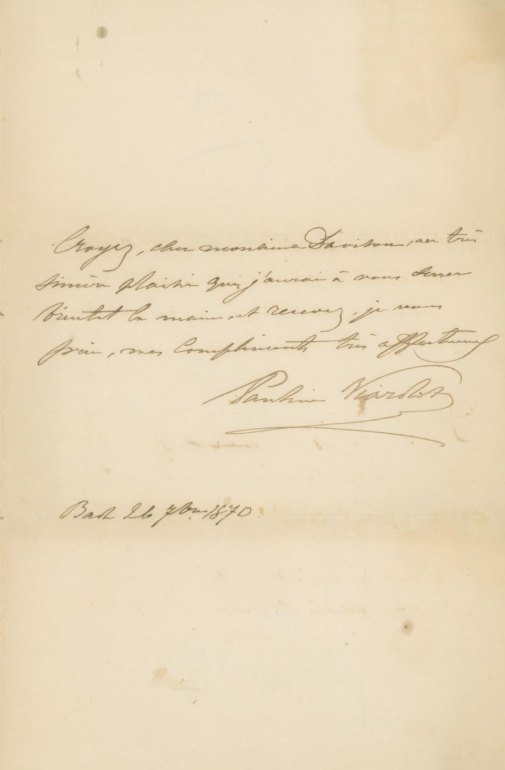 Croyez, cher monsieur Davison, au très
sincère plaisir que j'aurai à vous serrer
bientôt la main et recevez, je vous
prie, mes compliments très affectueux
Pauline Viardot
Bade 26 7bre 1870